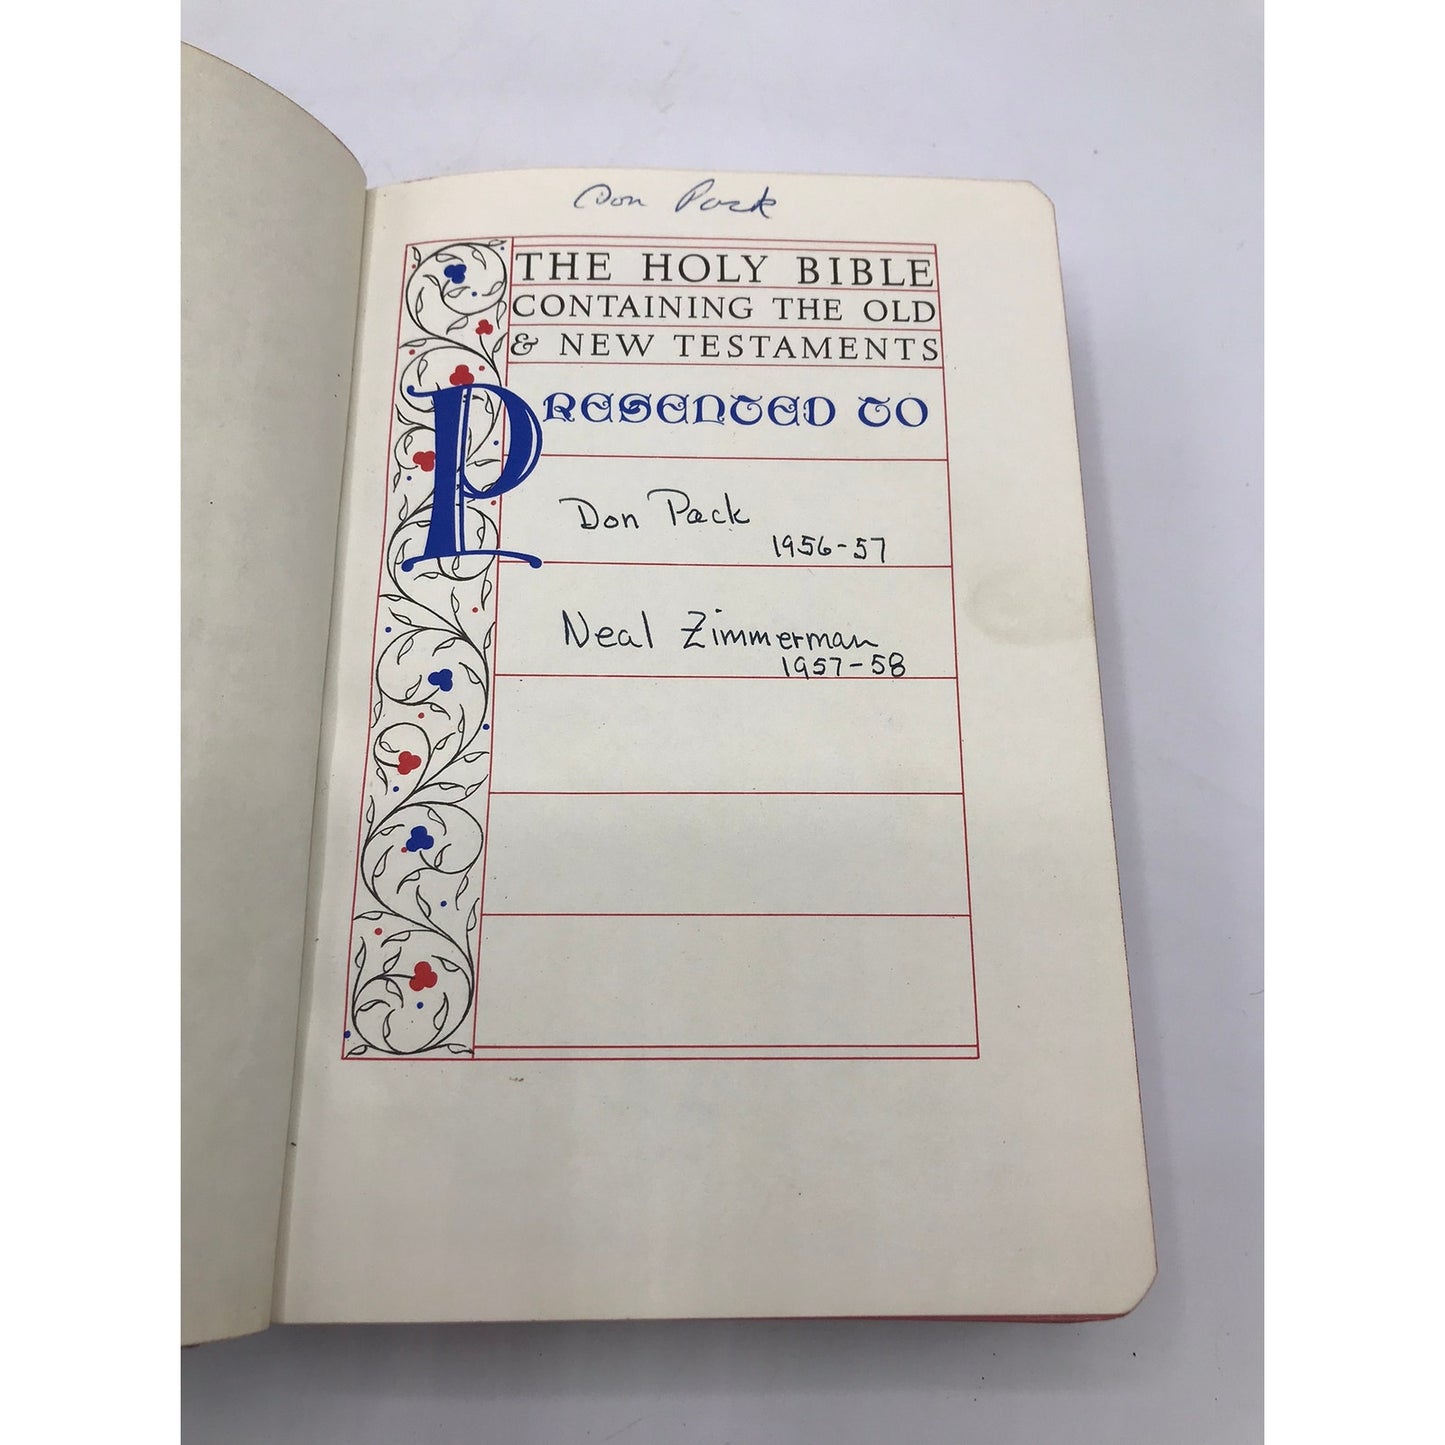 Don Pack
THE HOLY BIBLE
CONTAINING THE OLD
& NEW TESTAMENTS
PRESENTED TO
Don Pack
1956-57
Neal Zimmerman
1957-58